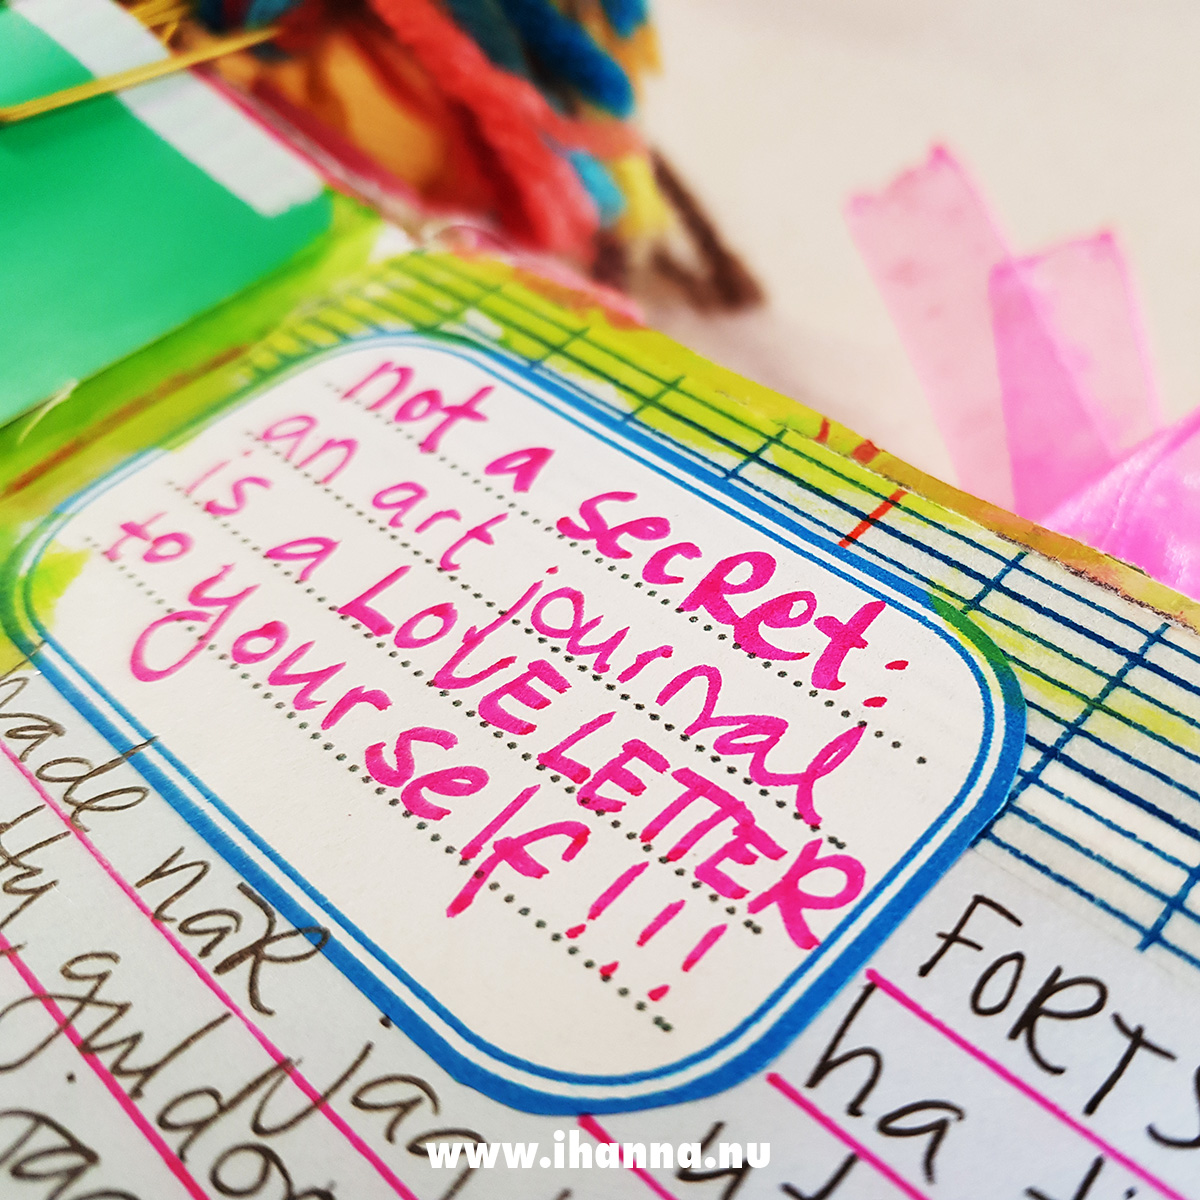 not a secRet:
an art journal
is a LOVE LETTER
to yourself!!!
nade när jag
guldo
FORTS
ha
www.ihanna.nu